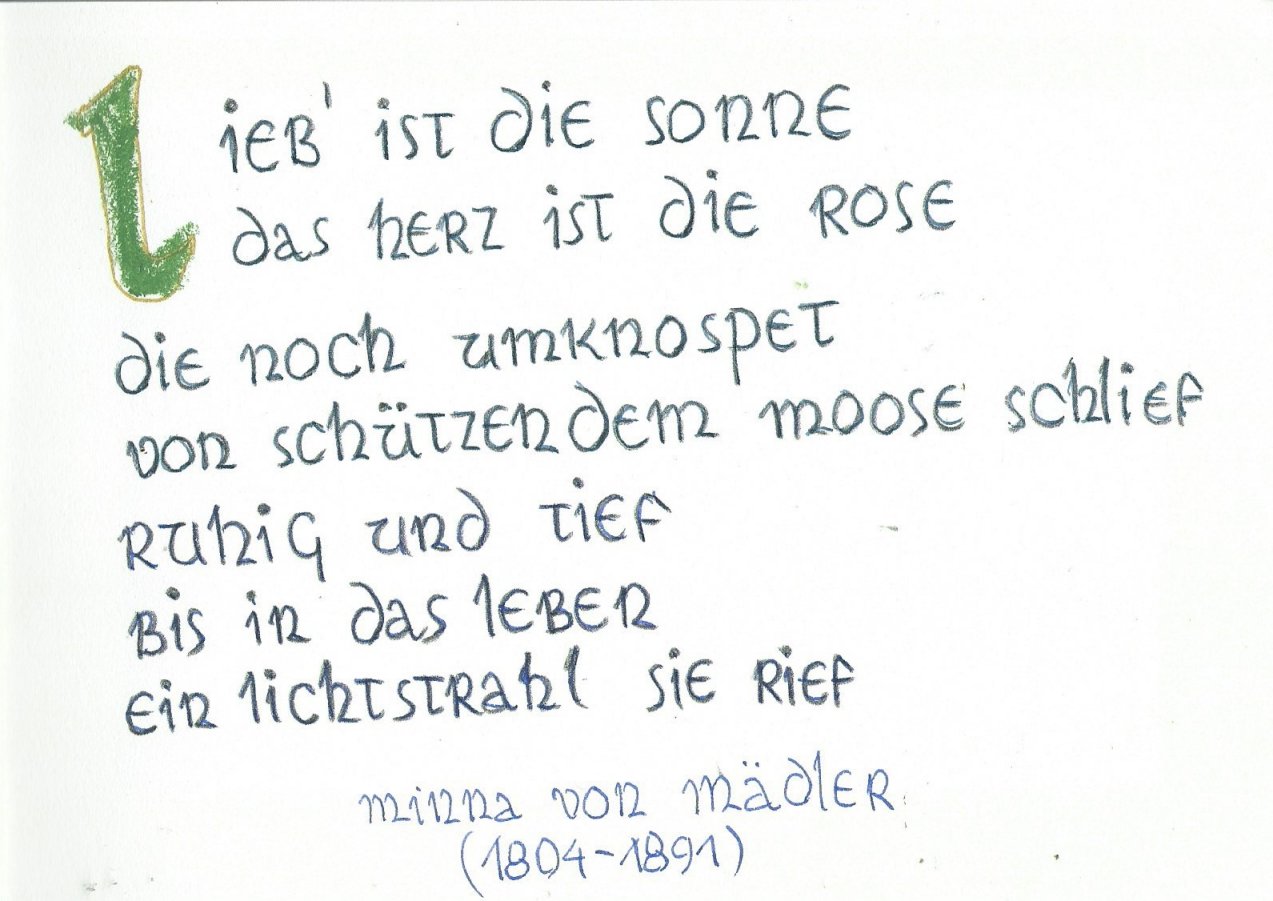 lieb' ist die sonne
das herz ist die rose
die noch umknospet
von schützendem moose schlief
ruhig und tief
bis in das leben
ein lichtstrahl sie rief
minna von mädler
(1804-1891)